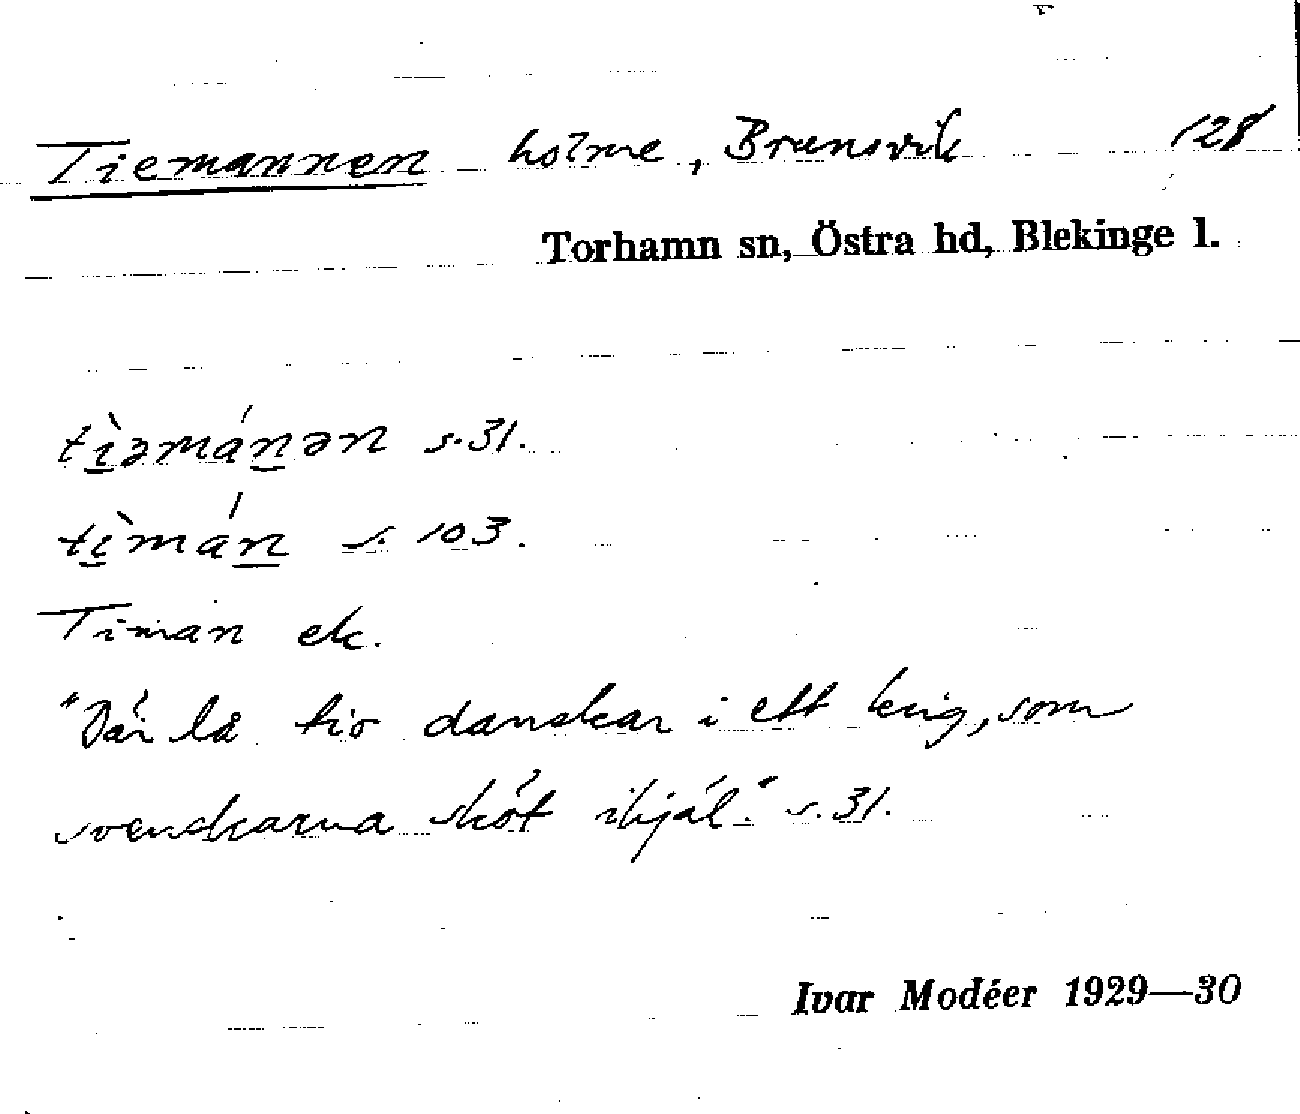 Tiemannen holme, Brunsvik 128
Torhamn sn, Östra hd, Blekinge l.
tìəmánən s. 31.
tìmán s. 103.
Timan ek.
"Där lå tio danskar i ett krig, som
svenskarna sköt ihjäl." s. 31.
Ivar Modéer 1929—30